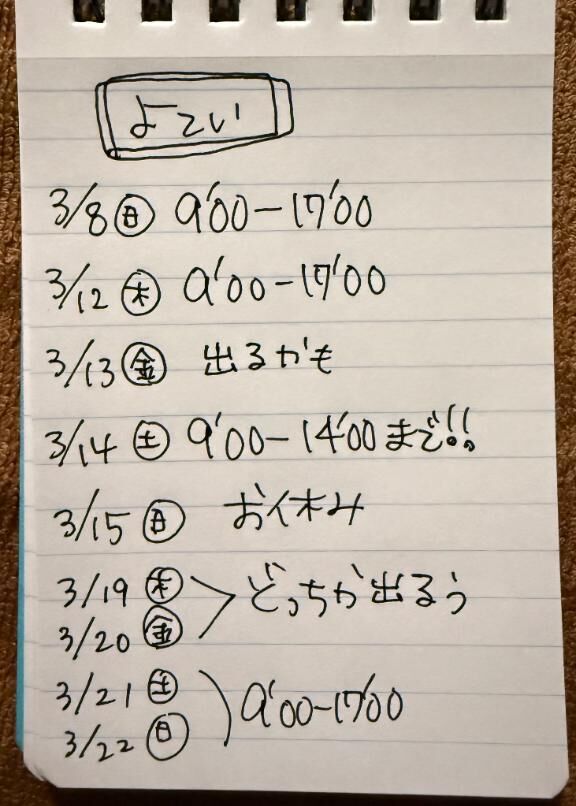 よこい
3/8㊐ 9'00-17'00
3/12㊍ 9'00-17'00
3/13㊎ 出るかも
3/14㊏ 9'00-14'00まで!!
3/15㊐ お休み
3/19㊍
3/20㊎ > どっちか出るぅ
3/21㊏
3/22㊐ ) 9'00-17'00